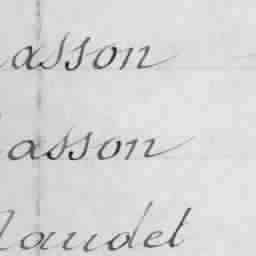 asson
asson
audet